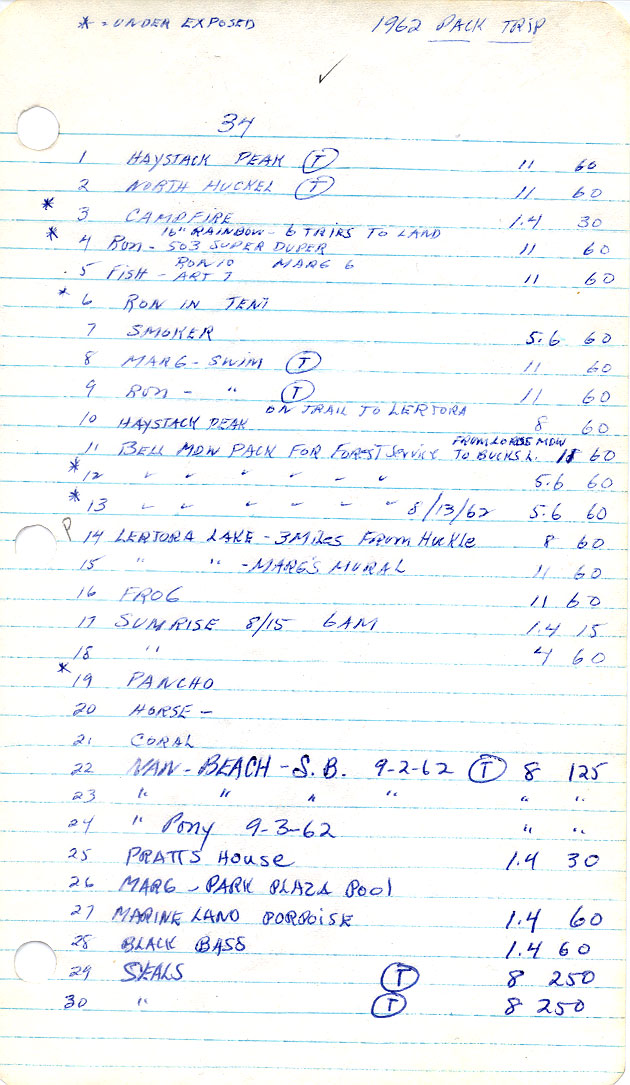 * = UNDER EXPOSED 1962 PACK TRIP
✓
34
1 HAYSTACK PEAK (T) 11 60
2 NORTH HUCKEL (T) 11 60
* 3 CAMPFIRE 1.4 30
16" RAINBOW - 6 TRIES TO LAND
* 4 RON - 503 SUPER DUPER 11 60
RON 10 MARG 6
5 FISH - ART 7 11 60
* 6 RON IN TENT
7 SMOKER 5.6 60
8 MARG - SWIM (T) 11 60
9 RON - " (T) 11 60
ON TRAIL TO LERTORA
10 HAYSTACK PEAK 8 60
FROM HORSE MDW
11 BELL MDW PACK FOR FOREST Service TO BUCKS L. 11 60
* 12 " " " " " " 5.6 60
* 13 " " " " " " 8/13/62 5.6 60
P 14 LERTORA LAKE - 3 Miles From Huckle 8 60
15 " " - MARG'S MURAL 11 60
16 FROG 11 60
17 SUMRISE 8/15 6 AM 1.4 15
18 " 4 60
* 19 PANCHO
20 HORSE -
21 CORAL
22 NAN - BEACH - S.B. 9-2-62 (T) 8 125
23 " " " " " "
24 " Pony 9-3-62 " "
25 PRATTS House 1.4 30
26 MARG - PARK PLAZA POOL
27 MARINE LAND PORPOISE 1.4 60
28 BLACK BASS 1.4 60
29 SEALS (T) 8 250
30 " (T) 8 250